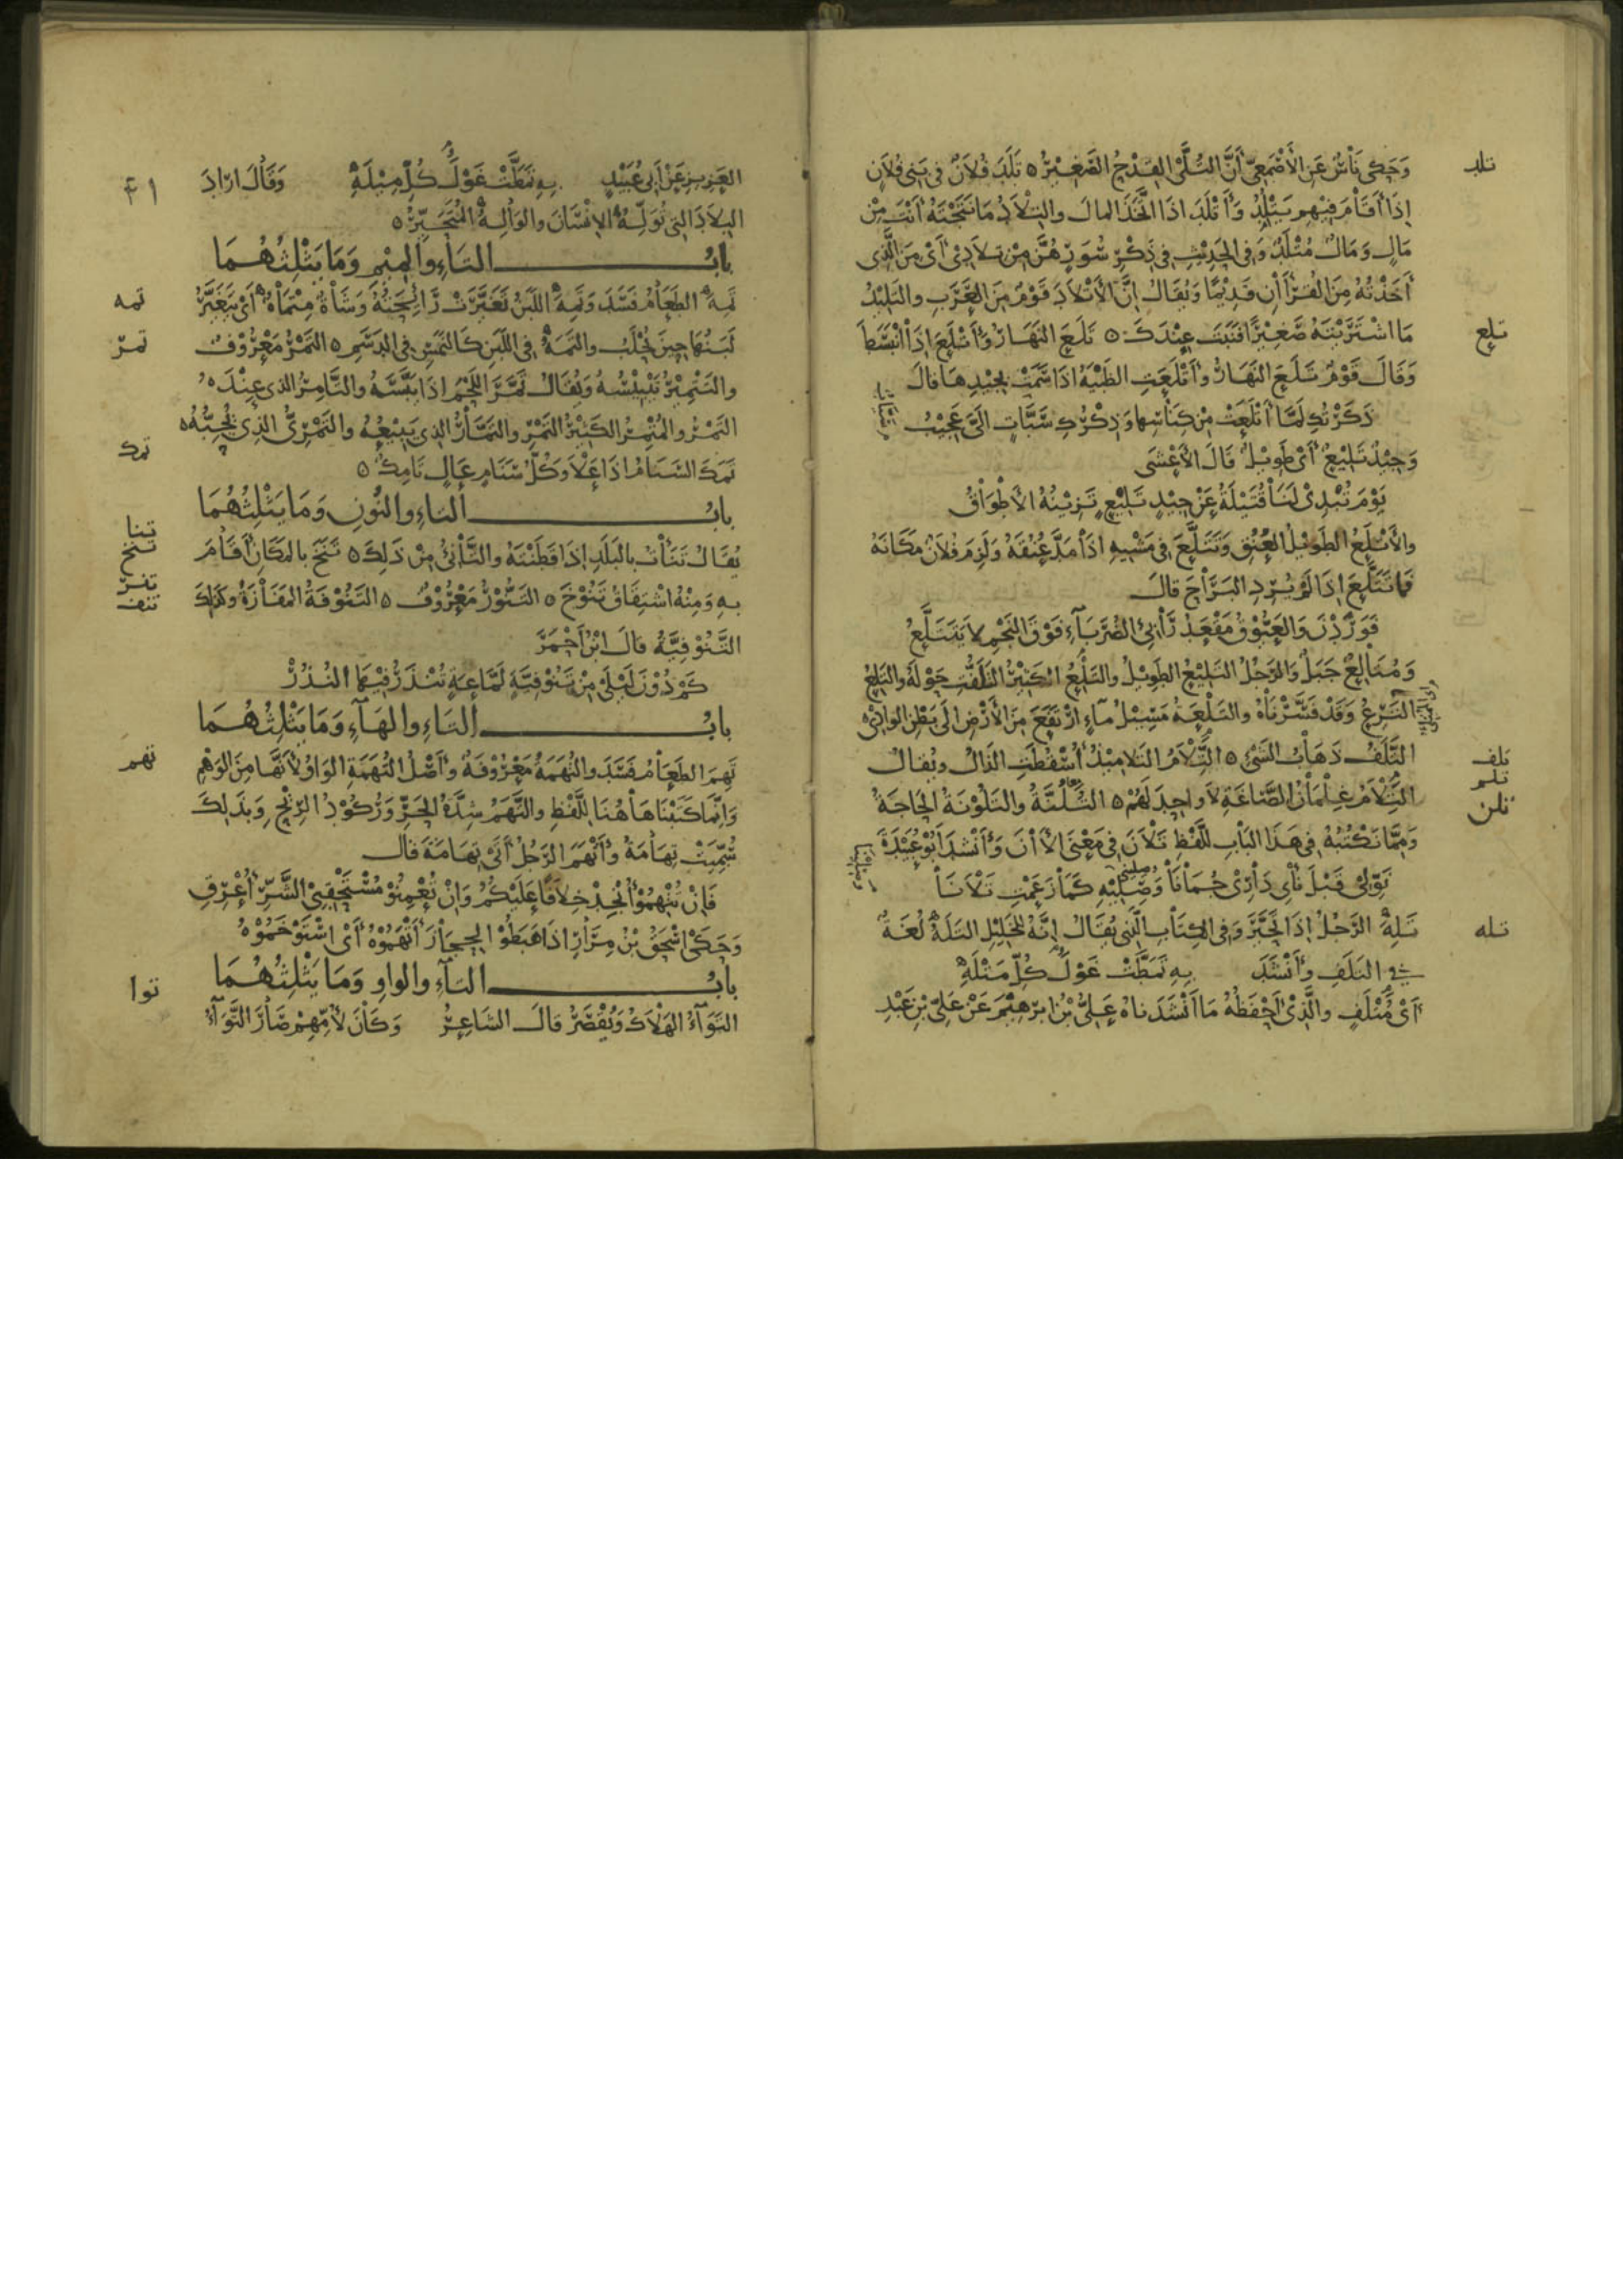 وَحَكى نَاسٌ عَنِ الأَصْمَعِيّ أَنَّ التُلَّى القِدْحُ الصَّغِيْرُ ٥ تَلَدَ فُلَانٌ فى بَنِى فُلَانٍ
تلد
إِذَا أَقَامَ فِيْهِم يَتْلُِدُ وَأَتْلَدَ اذَا اتَّخَذَ المالَ والتِلَادُ مَا نَتَجْتَهُ أَنْتَ مِنْ
مَالٍ وَمَالٌ مُتْلَدٌ وَفى الحَدِيْثِ فى ذِكْرِ سُوَرٍ هُنَّ مِنْ تِلَادِىْ أَىْ مِنَ الَّذِى
أَخَذْتُهُ مِنَ القُرْأَنِ قَدِيْمًا وَيُقَالُ إِنَّ الأَتْلَادَ قَوْمٌ مِنَ العَرَبِ والتَلِيْدُ
مَا اشْتَرَيْتَهُ صَغِيْرًا فَنَبَتَ عِنْدَكَ ٥ تَلَعَ النَهَارُ وَأَتْلَعَ إِذَا انْبَسَطَ
تلع
وَقَالَ قَوْمٌ تَلَعَ النَهَارُ وَأَتْلَعَتِ الظَبْيَةُ اذَا سَمَتْ بِجِيْدِهَا قالَ
ذَكَرْتُكِ لَمَّا أَتْلَعَتْ مِنْ كِنَاسِهَا وَذِكْرُكِ سَبَّاتٍ إِلَىَّ عَجِيْبُ
وَجِيْدٌ تَلِيْعٌ أَىْ طَوِيْلٌ قَالَ الأَعْشَى
يَوْمَ تُبْدِىْ لَنَا قُتَيْلَةُ عَنْ جِيْدٍ تَلِيْعٍ تَزِيْنُهُ الأَطْوَاقُ
والأَتْلَعُ الطَوِيْلُ العُنُقِ وَتَتَلَّعَ فى مَشْيِهِ اذَا مَدَّ عُنُقَهُ وَلَزِمَ فُلَانٌ مَكَانَهُ
فَمَا تَتَلَّعَ إِذَا لَمْ يُرِدِ البَرَاحَ قَالَ
فَوَرَدْنَ وَالعَيُّوْقُ مَقْعَدَ رَابِئِ الضُرَبَآءِ فَوْقَ النَجْمِ لَا يَتَتَلَّعُ
وَمُتَالِعٌ جَبَلٌ وَالرَجُلُ التَلِيْعُ الطَوِيْلُ والتَلِعُ الكَثِيْرُ التَلَفُّتِ حَوْلَهُ والتَلِعُ
التَرِعُ وَقَدْ فَسَّرْنَاهُ والتَلْعَةُ مَسِيْلُ مآءٍ ارْتَفَعَ مِنَ الأَرْضِ إِلَى بَطْنِ الوادِى ٥
التَلَفُ ذَهَابُ الشَىْءِ ٥ التِّلَامُ التَلَامِيْذُ أُسْقِطَتِ الذَالُ ويُقالُ
تلف
تلم
التِّلَامُ غِلْمَانُ الصَّاغَةِ لَا وَاحِدَ لَهُمْ ٥ التُلُنَّةُ والتَلُوْنَةُ الحَاجَةُ
تلن
وَمِمَّا نَكْتُبُهُ فى هَذَا البَابِ لِلَّفْظِ تَلَانَ فى مَعْنَى الأَانَ وَأَنْشَدَ أَبُوْ عُبَيْدَةَ
نَوِّلِىْ قَبْلَ نَأْىِ دَارِىْ جُمَانَا وَصِلِيْهِ كَمَا زَعَمْتِ تَلَانَا
تَلِهَ الرَجُلُ إِذَا تَحَيَّرَ وَفى الكِتَابِ الَّذِى يُقَالُ إِنَّهُ لِلْخَلِيْلِ التَلَهُ لُغَةٌ
تله
فى التَلَفِ وَأَنْشَدَ بِهِ تَمَطَّتْ غَوْلَ كُلِّ مَتْلَهِ
أَىْ مَتْلَفٍ والَّذِىْ أَحْفَظُهُ مَا أَنْشَدَناهُ عَلِىُّ بْنُ ابرَهِيْمَ عَنْ عَلِىِّ بْنِ عَبْدِ
العَزِيزِ عَنْ أَبى عُبَيْدٍ بِهِ تَمَطَّتْ غَوْلَ كُلِّ مِيْلَهِ وَقَالَ ارَادَ
٤١
البِلَادَ التى تُوَلِّهُ الإِنْسَانَ والوَالِهُ المُتَحَيِّرُ ٥
بابُ التَاءِ والمِيْمِ وَمَا يَثْلِثُهُمَا
تَمِهَ الطَعَامُ فَسَدَ وَتَمِهَ اللَبَنُ تَغَيَّرَتْ رَائِحَتُهُ وَشَاةٌ مِتْمَاهٌ أَىْ يَتَغَيَّرُ
تمه
لَبَنُهَا حِيْنَ يُحْلَبُ والتَمَهُ فى اللَبَنِ كَالنَمَسِ فى الدَسَمِ ٥ التَمْرُ مَعْرُوْفٌ
تمر
والتَتْمِيْرُ تَيْبِيْسُهُ وَيُقَالُ تَمَّرَ اللَحْمُ اذَا يَبَّسَهُ والتَّامِرُ الذى عِنْدَهُ
التَمْرُ والمُتْمِرُ الكَثِيْرُ التَمْرِ والتَمَّارُ الذِى يَبِيْعُهُ والتَمْرِىُّ الذِى يُحِبُّهُ ٥
تَمَكَ السَنَامُ اذَا عَلَا وَكُلُّ سَنَامٍ عَالٍ تَامِكٌ ٥
تمك
بابُ التاءِ والنُوْنِ وَمَا يَثْلِثُهُمَا
يُقَالُ تَنَأْتُ بالبَلَدِ إِذَا قَطَنْتَهُ والتَّانِئُ مِنْ ذَلِكَ ٥ تَنَخَ بالمَكَانِ أَقَامَ
تنا
تنخ
بِهِ وَمِنْهُ اشْتِقَاقُ تَنُوْخَ ٥ التَنُّوْرُ مَعْرُوْفٌ ٥ التَنُوْفَةُ المَفَازَةُ وكذلِكَ
تنر
تنف
التَنُوْفِيَّةُ قالَ ابْنُ أَحْمَرَ
كَمْ دُوْنَ لَيْلَى مِنْ تَنُوْفِيَّةٍ لَمَّاعَةٍ تُنْذَرُ فِيْهَا النُذُرْ
بابُ التَاءِ والهَآءِ وَمَا يَثْلِثُهُمَا
تَهِمَ الطَعَامُ فَسَدَ والتُهَمَةُ مَعْرُوْفَةٌ وَأَصْلُ التُهَمَةِ الوَاوُ لأَنَّهَا مِنَ الوَهْمِ
تهم
وَإِنَّمَا كَتَبْنَاهَا هُنَا لِلَّفْظِ والتَّهَمُ شِدَّةُ الحَرِّ وَرُكُوْدُ الرِّيْحِ وَبِذَلِكَ
سُمِّيَتْ تِهَامَةُ وَأَتْهَمَ الرَجُلُ أَتَى تِهَامَةَ قالَ
فَإِنْ تُتْهِمُوْا أُنْجِدْ خِلَافًا عَلَيْكُمُ وَإِنْ تُعْمِنُوْا مُسْتَحْقِبِىْ الشَّرِّ أُعْرِقِ
وَحَكَى اسْحَقُ بْنُ مِرَارٍ اذَا هَبَطُوْا الحِجَازَ أَتْهَمُوْهُ أَىْ اسْتَوْخَمُوْهُ
بابُ التآءِ والواوِ وَمَا يَثْلِثُهُمَا
التَوَآءُ الهَلَاكُ وَيُقْصَرُ قالَ الشَاعِرُ وَكَانَ لأُمِّهِمْ صَارَ التَّوَآءُ
توا